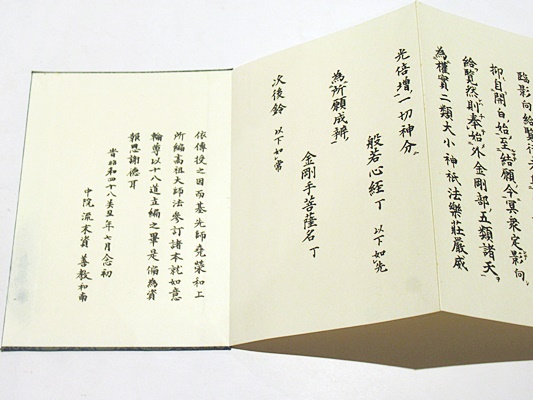 臨影向給覧行
抑自開白始至結願今冥衆定影向
給覧然則奉始外金剛部五類諸天
為權實二類大小神祇法樂荘嚴威
光倍增一切神分
般若心経丁 以下如先
為所願成辨
金剛手菩薩名丁
次後鈴 以下如常
依傳授之因而基先師尭榮和上
所編高祖大師法參訂諸本就如意
輪尊以十八道立編之畢是偏為資
報恩謝德耳
昭和四十八癸丑年七月念初
中院流末資善教和南